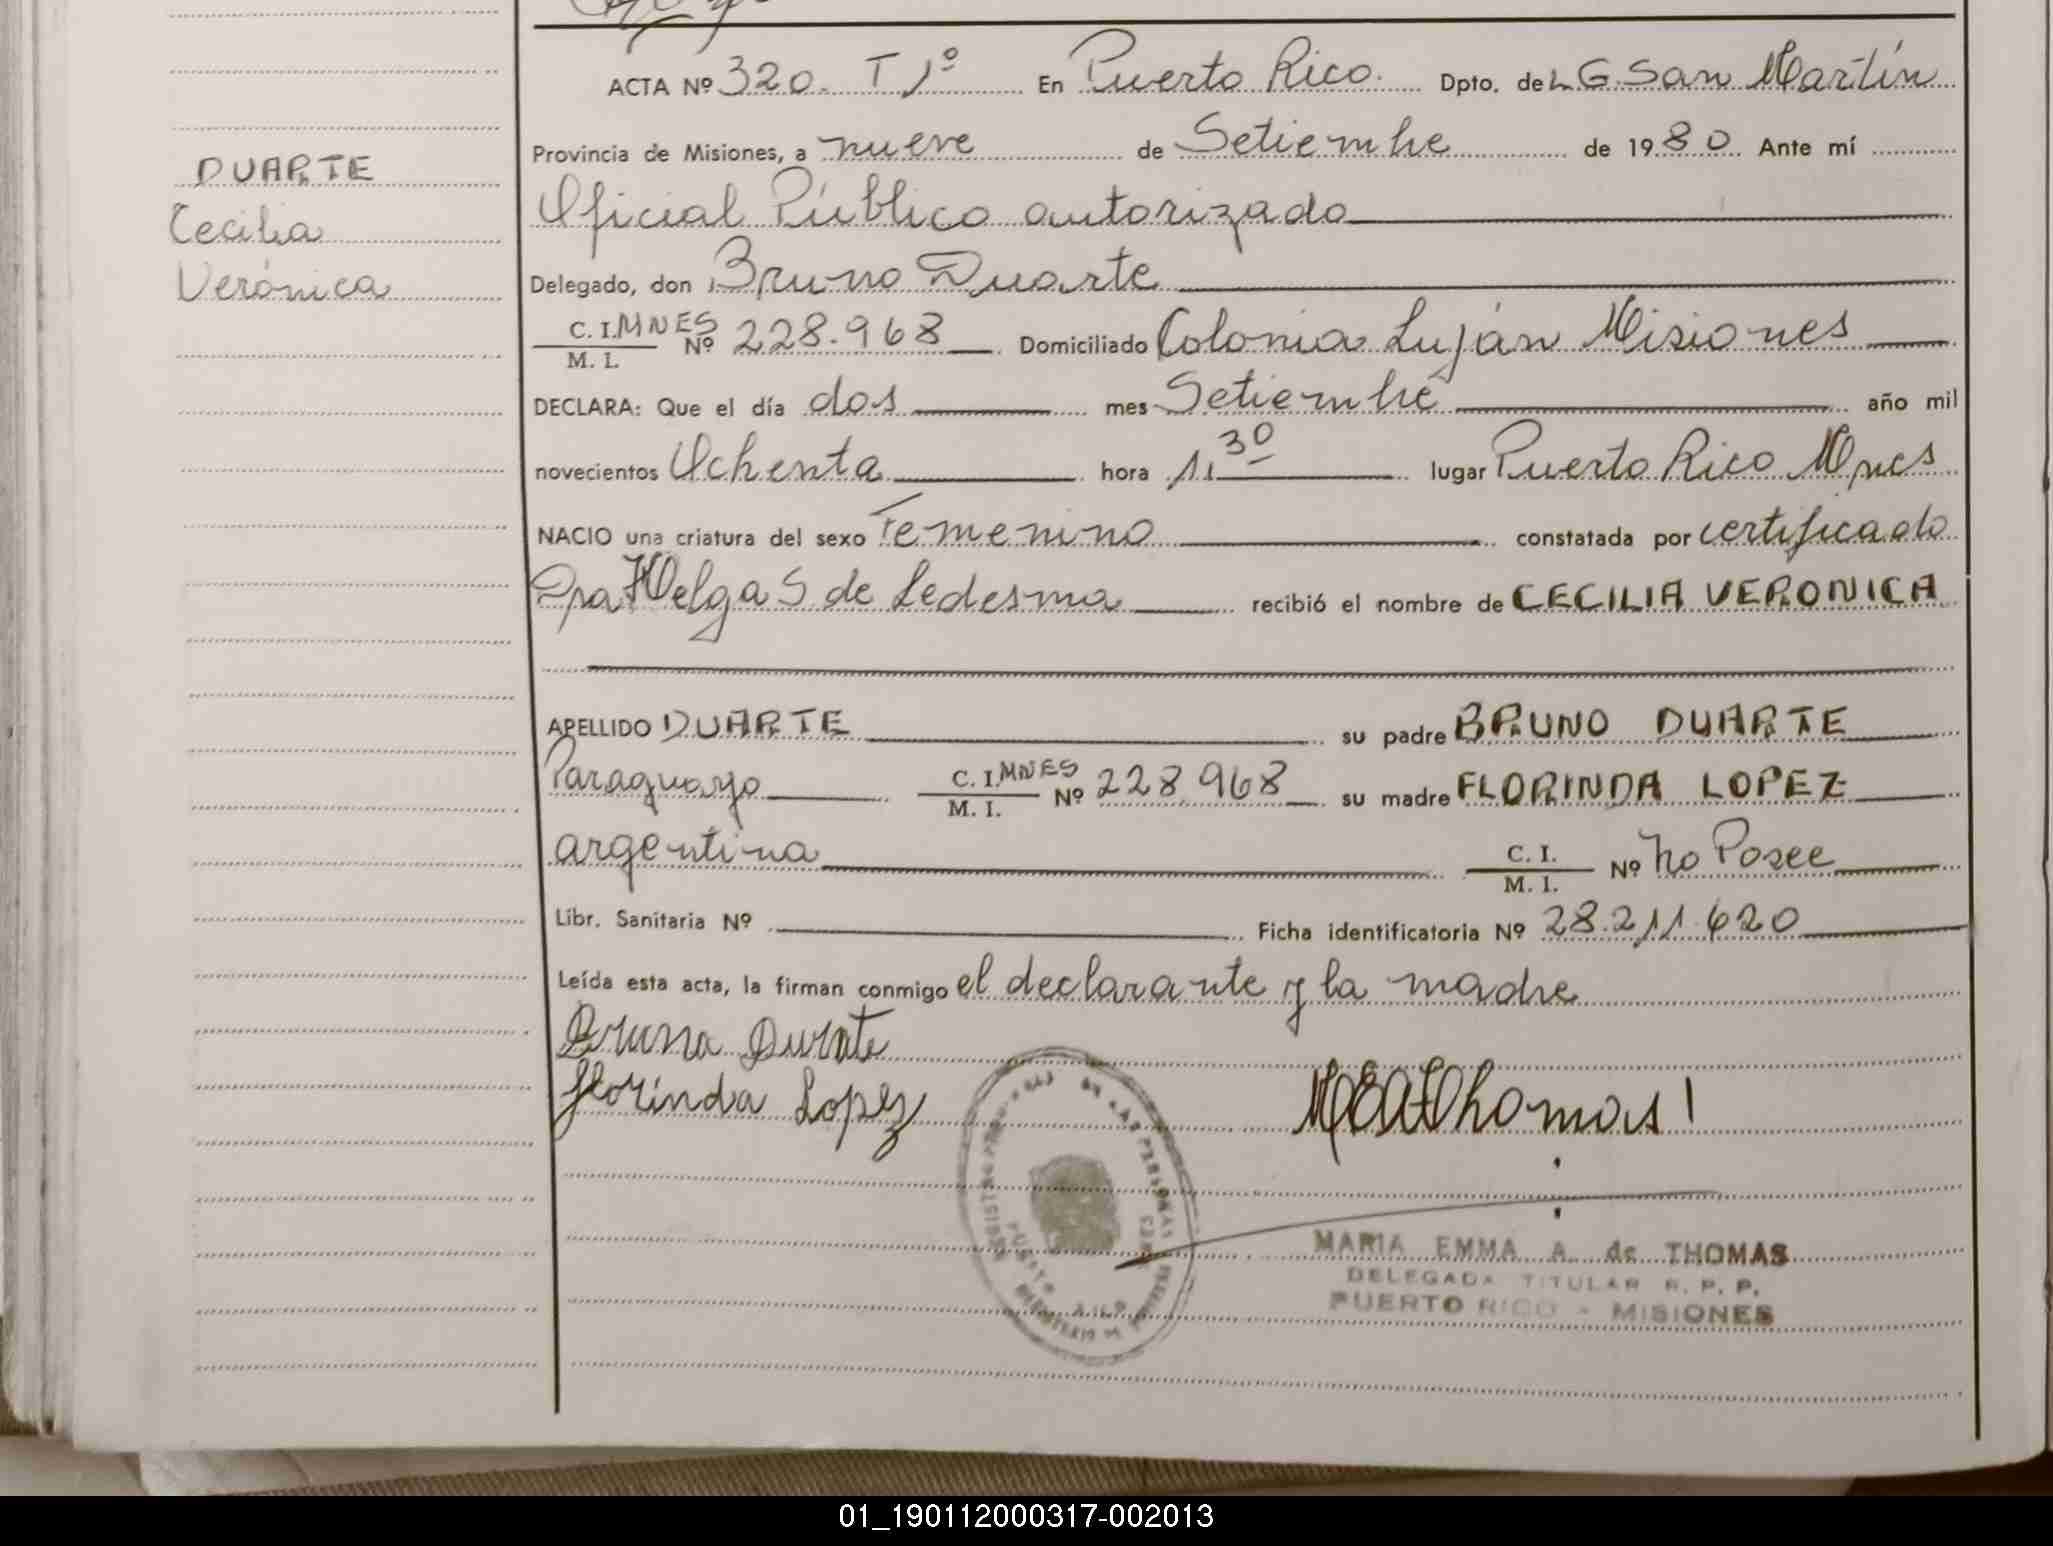 ACTA Nº 320. T 1º En Puerto Rico. Dpto. de L G. San Martín
DUARTE
Cecilia
Verónica
Provincia de Misiones, a nueve de Setiembre de 1980. Ante mí
Oficial Público autorizado
Delegado, don Bruno Duarte
C. I. MNES
M. I. Nº 228.968 Domiciliado Colonia Luján Misiones
DECLARA: Que el día dos mes Setiembre año mil
novecientos Ochenta hora 11.30 lugar Puerto Rico Mnes
NACIO una criatura del sexo Femenino constatada por certificado
Dra Helga S de Ledesma recibió el nombre de CECILIA VERONICA
APELLIDO DUARTE su padre BRUNO DUARTE
Paraguayo C. I. MNES
M. I. Nº 228.968 su madre FLORINDA LOPEZ
argentina C. I.
M. I. Nº No Posee
Libr. Sanitaria Nº Ficha identificatoria Nº 28.211.620
Leída esta acta, la firman conmigo el declarante y la madre
Bruno Duarte
florinda Lopez
MEAThomas
MARIA EMMA A. de THOMAS
DELEGADA TITULAR R. P. P.
PUERTO RICO - MISIONES
01_190112000317-002013